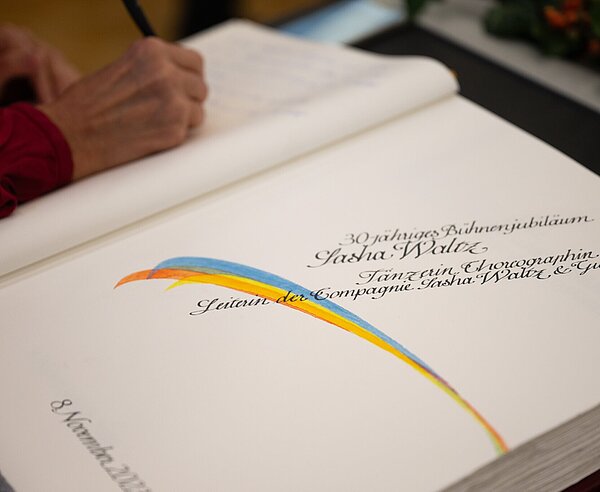 30 jähriges Bühnenjubiläum
Sasha Waltz
Tänzerin, Choreographin
Leiterin der Compagnie Sasha Waltz & Gu
8. November 202